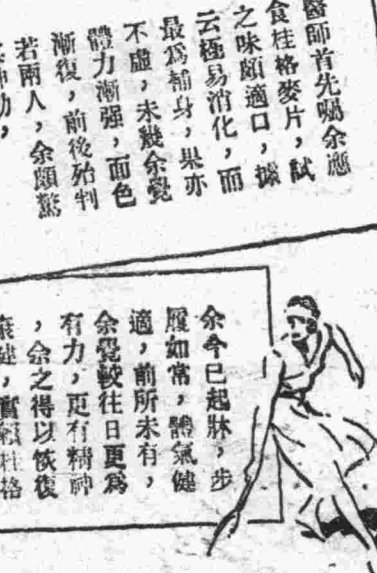 醫師首先囑余應
食桂格麥片，試
之味頗適口，據
云極易消化，而
最爲補身，果亦
不虛，未幾余覺
體力漸强，面色
漸復，前後殆判
若兩人，余頗驚
余今已起牀，步
履如常，體氣健
適，前所未有，
余覺較往日更爲
有力，更有精神
，余之得以恢復
康健，實賴桂格